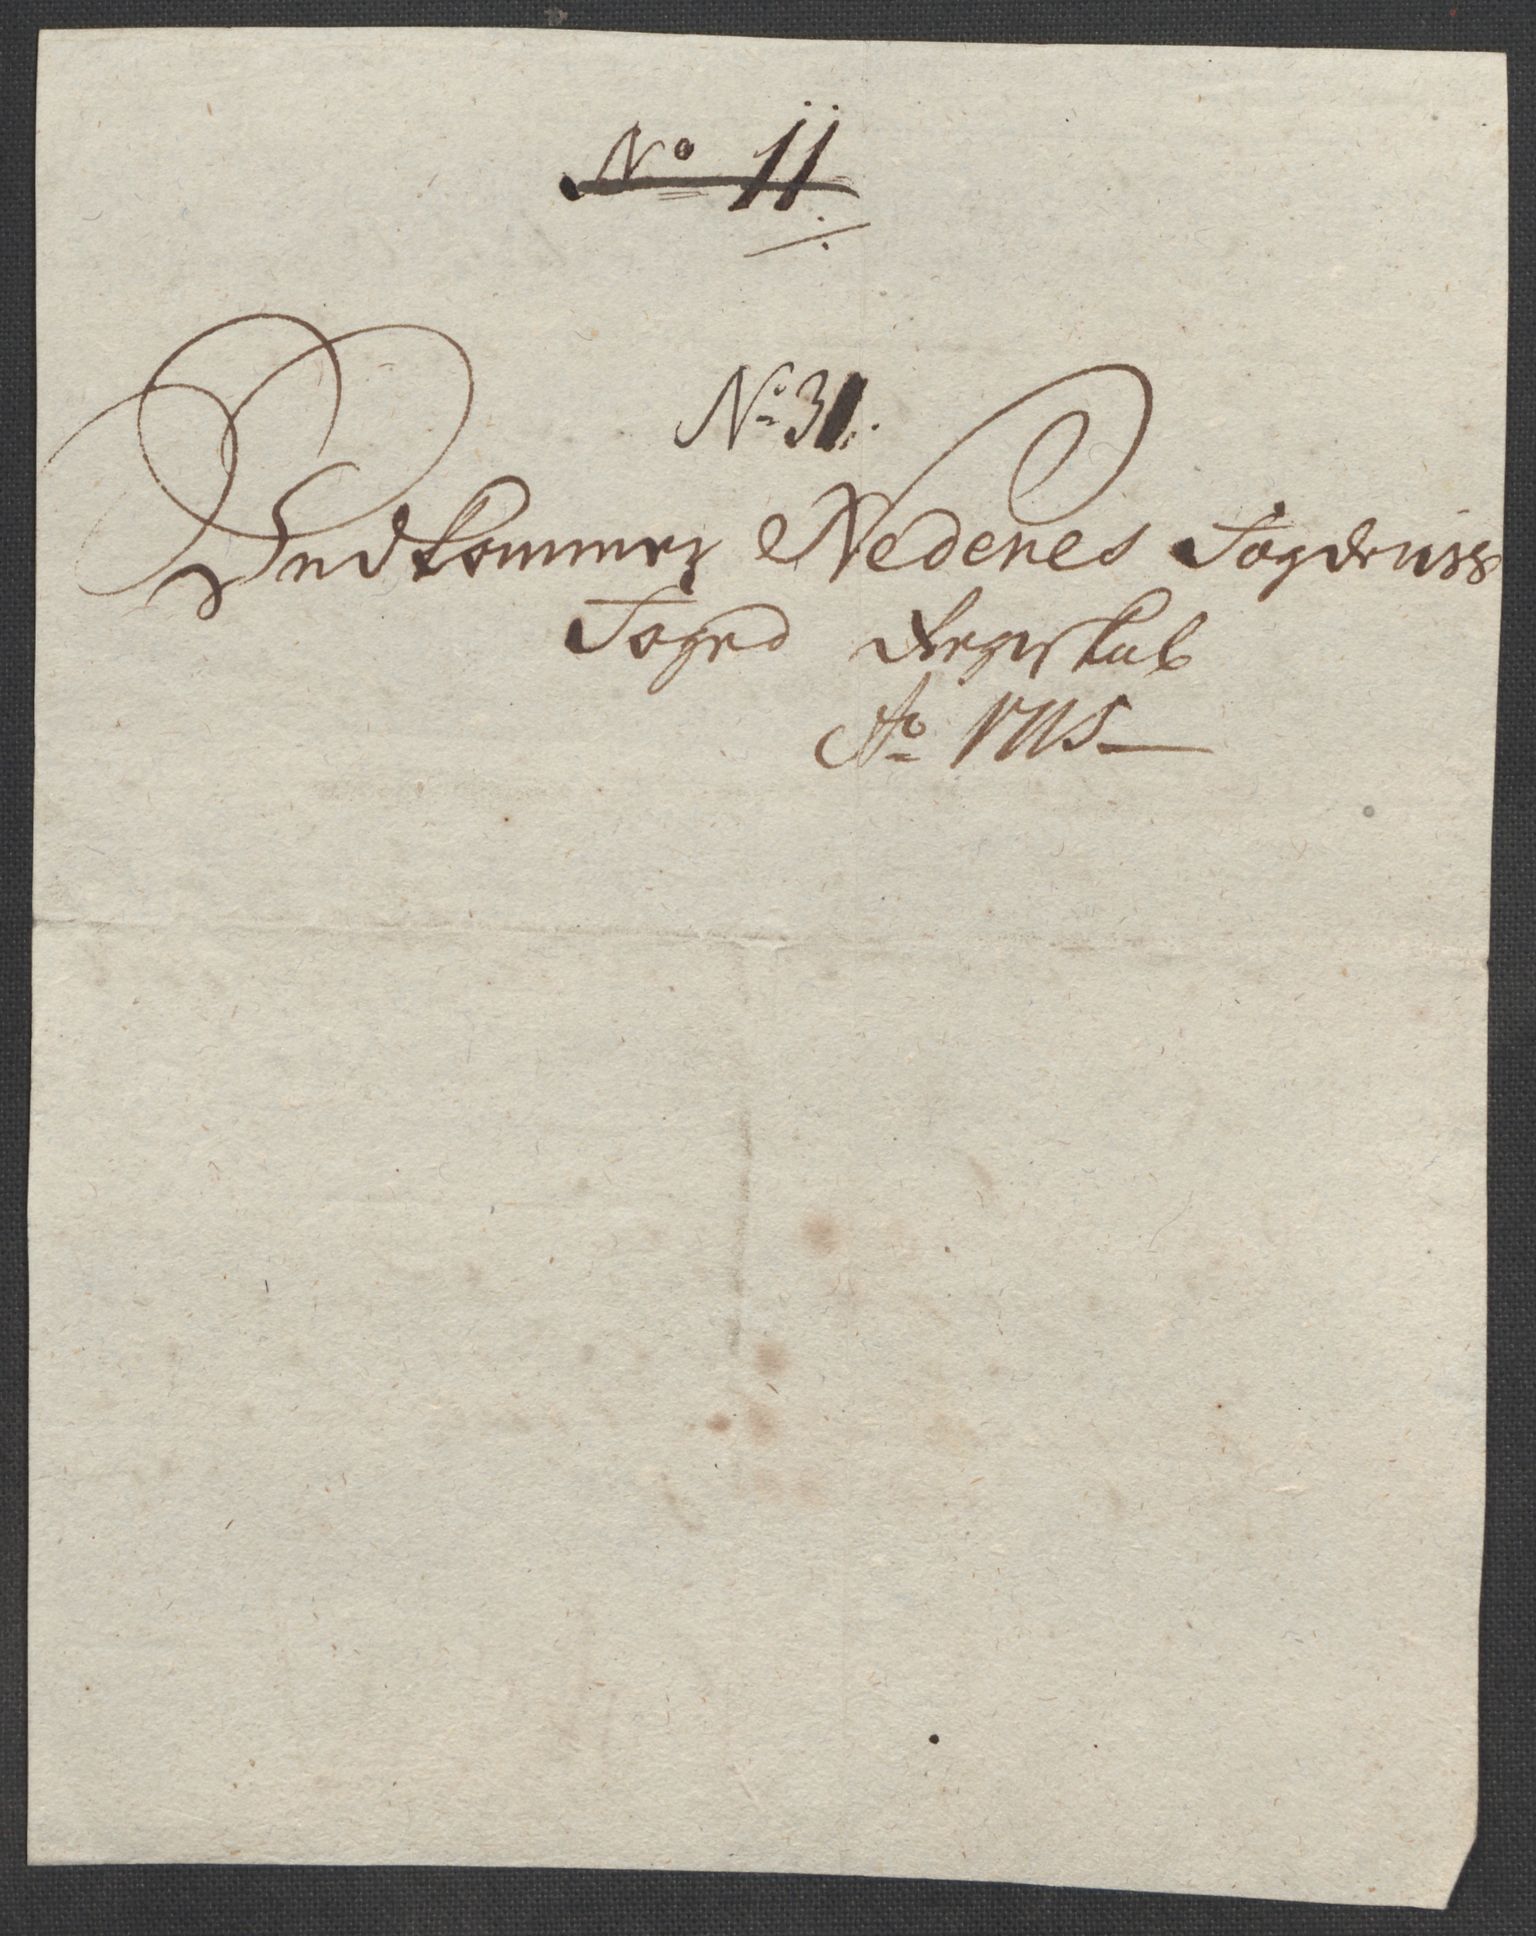 No 11
No 31.
Vedkommer Nedenes Fogderiis
Foged Regnskab
Ao 1715